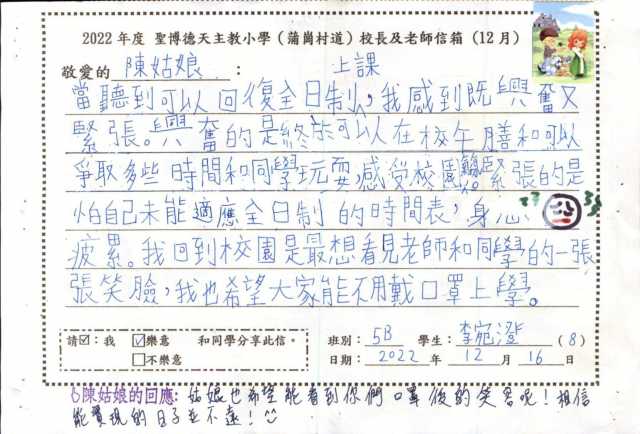 2022 年度 聖博德天主教小學（蒲崗村道）校長及老師信箱（12月）
敬愛的 陳姑娘：
上課
當聽到可以回復全日制，我感到既興奮又
緊張。興奮的是終於可以在校午膳和可以
爭取多些時間和同學玩耍，感受校園 緊張的是
怕自己未能適應全日制的時間表，身心
疲累。我回到校園是最想看見老師和同學的一張
張笑臉，我也希望大家能不用戴口罩上學。
請☑：我 ☑樂意 和同學分享此信。
□不樂意
班別：5B 學生：李宛澄（8）
日期：2022 年 12 月 16 日
陳姑娘的回應：姑娘也希望能看到你們口罩後的笑容呢！相信
能實現的日子並不遠！